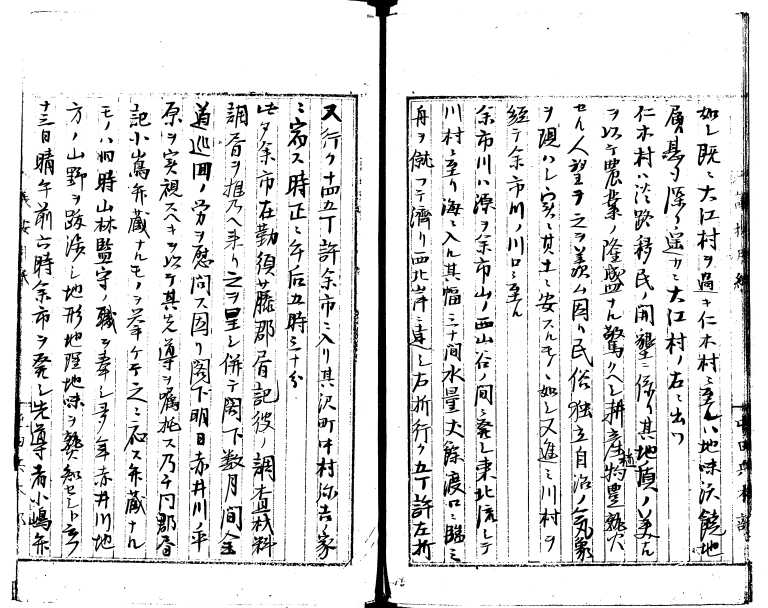 如シ既ニ大江村ヲ過キ仁木村ニ至ル地味沃饒地
質甚タ深ク遥カニ大江村ノ右ニ出ツ
仁木村ハ淡路移民ノ開墾ニ係リ其地質ノ美ナル
ヲ以テ農業ノ隆盛ナル驚クヘシ耕産物豊熟
セル人聖ヲ之ヲ羨ム因リ民俗独立自治ノ気象
ヲ現ハシ実ニ其土ニ安スルモノヽ如シ又進ミ川村ヲ
経テ余市川ノ川口ニ至ル
余市川ハ源ヲ余市山ノ西山谷ノ間ニ発シ東北流シテ
川村ニ至リ海ニ入ル其幅三十間水量丈餘渡口ニ臨ミ
舟ヲ僦フテ濟リ西北岸ニ達シ右折行ク五丁許左折
又行ク十四五丁許余市ニ入リ其沢町中村弥吉ノ家
ニ宿ス時正ニ午后五時三十分
此夕余市在勤須藤郡書記彼ノ調査材料
調書ヲ携ヘ来リ之ヲ呈シ併テ閣下数月間全
道巡回ノ労ヲ慰問ス因リ閣下明日赤井川ノ平
原ヲ実視スヘキヲ以テ其先導ヲ嘱托ス乃チ同郡書
記小嶌弁蔵ナルモノヲ挙ケテ之ニ応ス弁蔵ナル
モノハ旧時山林監守ノ職ヲ奉シ多年赤井川地
方ノ山野ヲ跋渉シ地形地理地味ヲ熟知セリト云フ
十三日晴午前六時余市ヲ発シ先導者小嶋弁